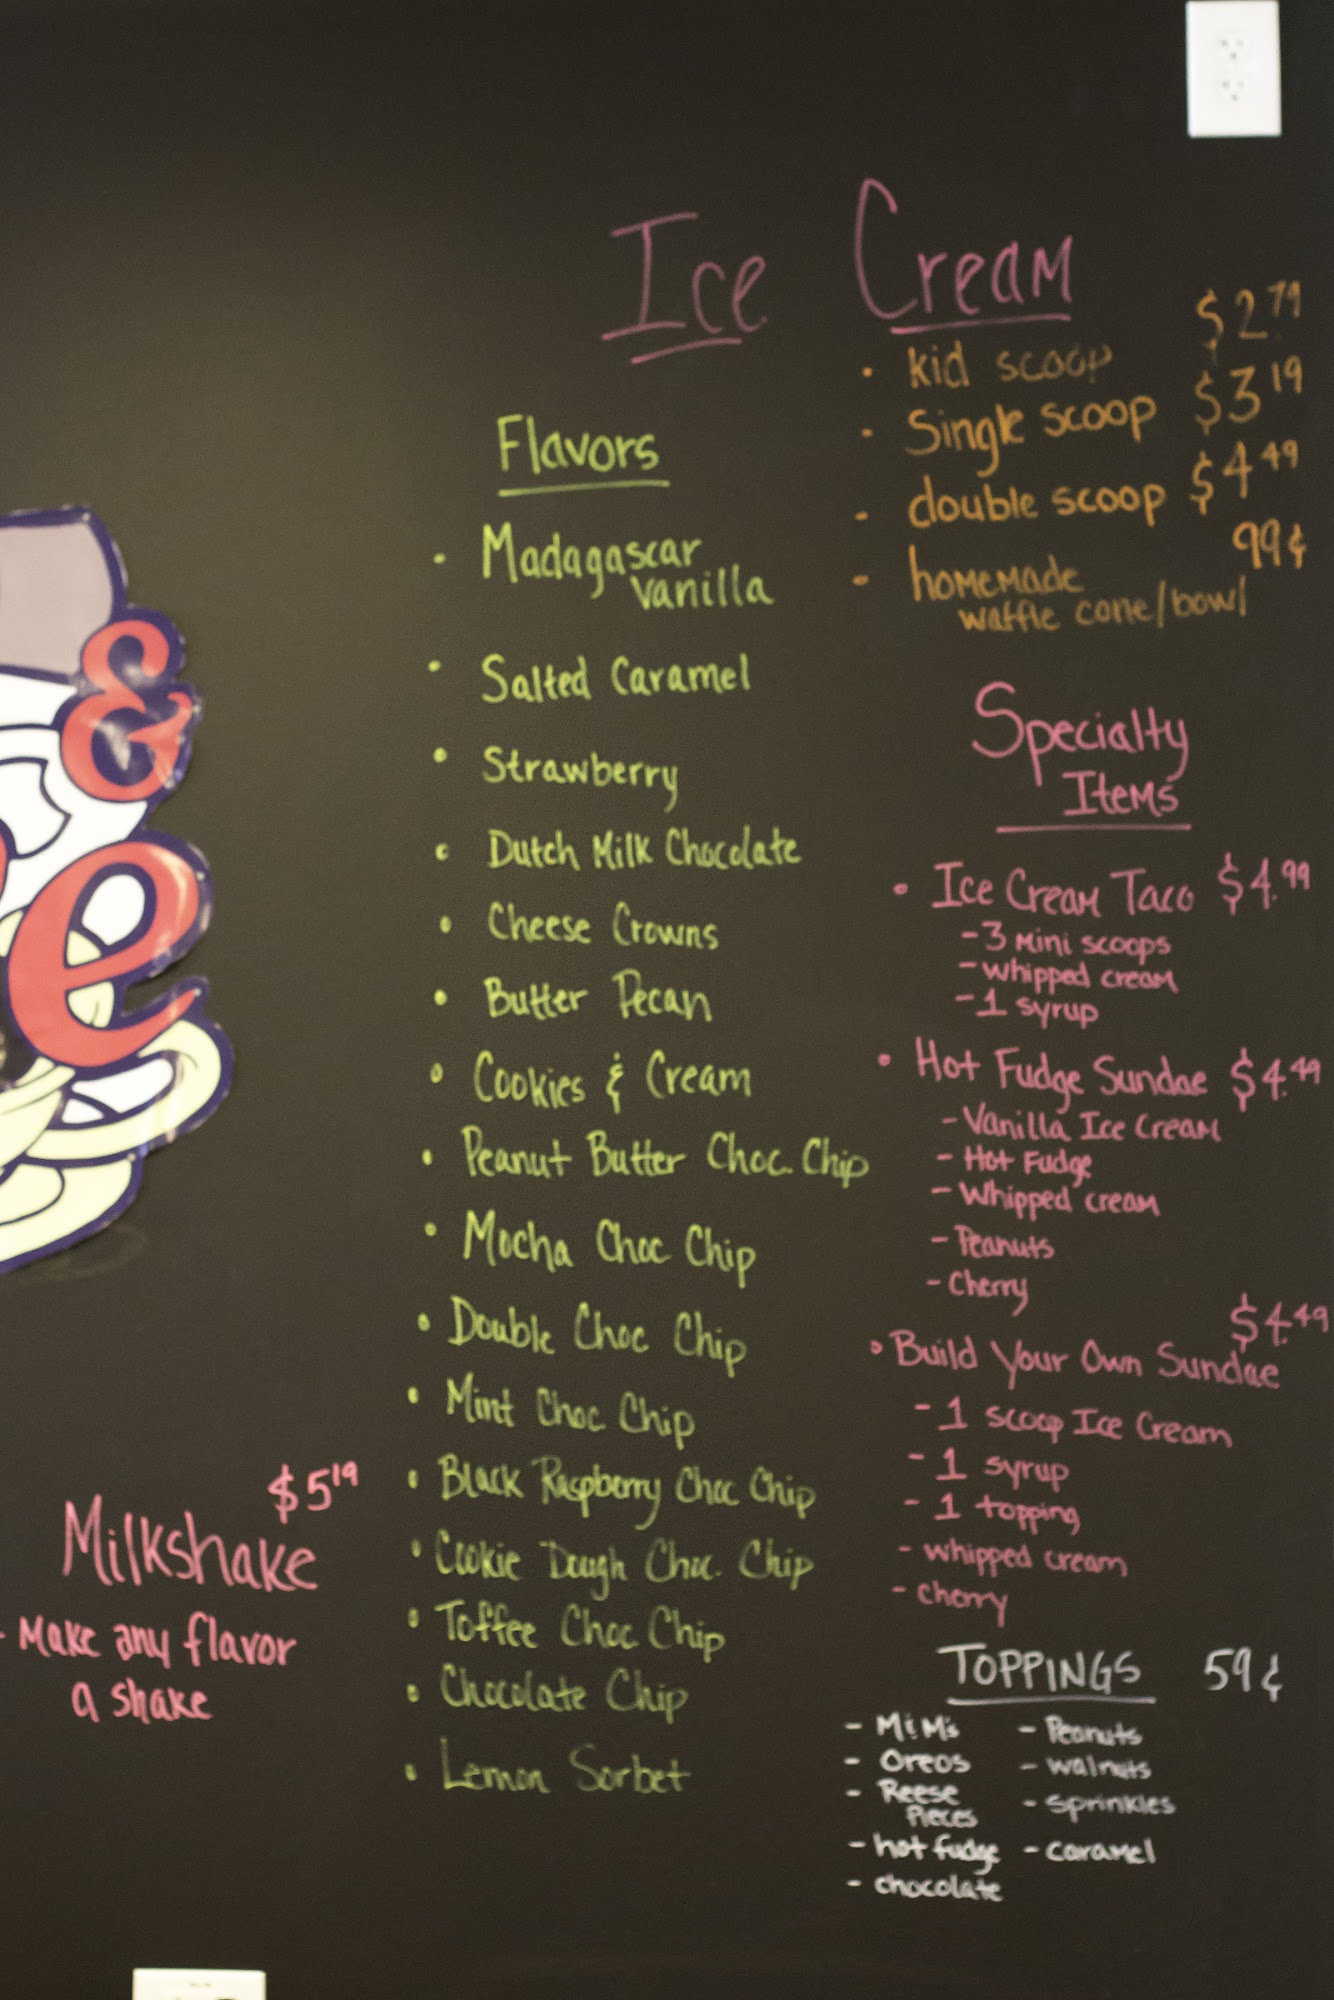 &
e
Ice Cream
· kid scoop $2.79
· Single scoop $3.19
- double scoop $4.49
99¢
- homemade
waffle cone/bowl
Flavors
· Madagascar
vanilla
· Salted Caramel
· Strawberry
· Dutch Milk Chocolate
· Cheese Crowns
· Butter Pecan
· Cookies & Cream
· Peanut Butter Choc. Chip
· Mocha Choc Chip
· Double Choc Chip
· Mint Choc Chip
· Black Raspberry Choc Chip
· Cookie Dough Choc. Chip
· Toffee Choc Chip
· Chocolate Chip
· Lemon Sorbet
Specialty
Items
· Ice Cream Taco $4.99
- 3 mini scoops
- whipped cream
- 1 syrup
· Hot Fudge Sundae $4.49
- Vanilla Ice Cream
- Hot Fudge
- Whipped cream
- Peanuts
- Cherry
$4.49
· Build Your Own Sundae
- 1 scoop Ice Cream
- 1 syrup
- 1 topping
- whipped cream
- cherry
TOPPINGS 59¢
- M&M's
- Oreos
- Reese
Pieces
- hot fudge
- chocolate
- Peanuts
- walnuts
- sprinkles
- caramel
$5.19
Milkshake
- Make any flavor
a shake